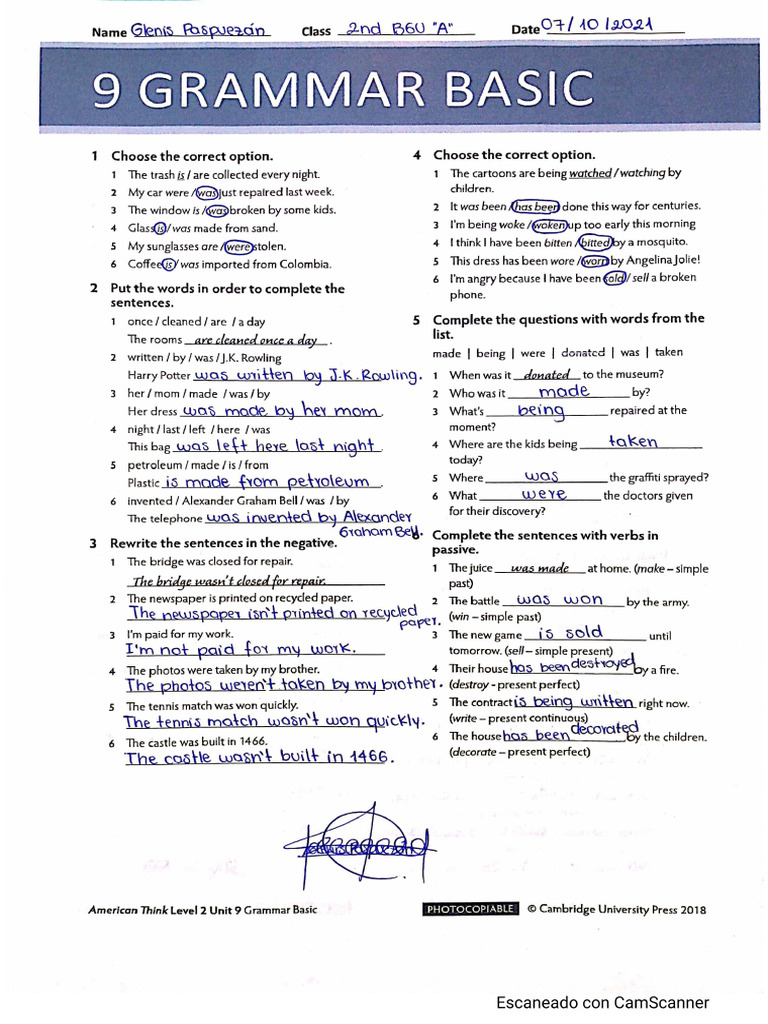 Name Glenis Paspuezán Class 2nd BGU "A" Date 07/10/2021
9 GRAMMAR BASIC
1 Choose the correct option.
1 The trash is / are collected every night.
2 My car were / was just repaired last week.
3 The window is / was broken by some kids.
4 Glass is / was made from sand.
5 My sunglasses are / were stolen.
6 Coffee is / was imported from Colombia.
2 Put the words in order to complete the
sentences.
1 once / cleaned / are / a day
The rooms are cleaned once a day.
2 written / by / was / J.K. Rowling
Harry Potter was written by J.K. Rowling.
3 her / mom / made / was / by
Her dress was made by her mom.
4 night / last / left / here / was
This bag was left here last night.
5 petroleum / made / is / from
Plastic is made from petroleum.
6 invented / Alexander Graham Bell / was / by
The telephone was invented by Alexander
Graham Bell.
3 Rewrite the sentences in the negative.
1 The bridge was closed for repair.
The bridge wasn't closed for repair.
2 The newspaper is printed on recycled paper.
The newspaper isn't printed on recycled
paper.
3 I'm paid for my work.
I'm not paid for my work.
4 The photos were taken by my brother.
The photos weren't taken by my brother.
5 The tennis match was won quickly.
The tennis match wasn't won quickly.
6 The castle was built in 1466.
The castle wasn't built in 1466.
4 Choose the correct option.
1 The cartoons are being watched / watching by
children.
2 It was been / has been done this way for centuries.
3 I'm being woke / woken up too early this morning
4 I think I have been bitten / bitted by a mosquito.
5 This dress has been wore / worn by Angelina Jolie!
6 I'm angry because I have been sold / sell a broken
phone.
5 Complete the questions with words from the
list.
made | being | were | donated | was | taken
1 When was it donated to the museum?
2 Who was it made by?
3 What's being repaired at the
moment?
4 Where are the kids being taken
today?
5 Where was the graffiti sprayed?
6 What were the doctors given
for their discovery?
6 Complete the sentences with verbs in
passive.
1 The juice was made at home. (make – simple
past)
2 The battle was won by the army.
(win – simple past)
3 The new game is sold until
tomorrow. (sell – simple present)
4 Their house has been destroyed by a fire.
(destroy - present perfect)
5 The contract is being written right now.
(write – present continuous)
6 The house has been decorated by the children.
(decorate – present perfect)
American Think Level 2 Unit 9 Grammar Basic PHOTOCOPIABLE © Cambridge University Press 2018
Escaneado con CamScanner